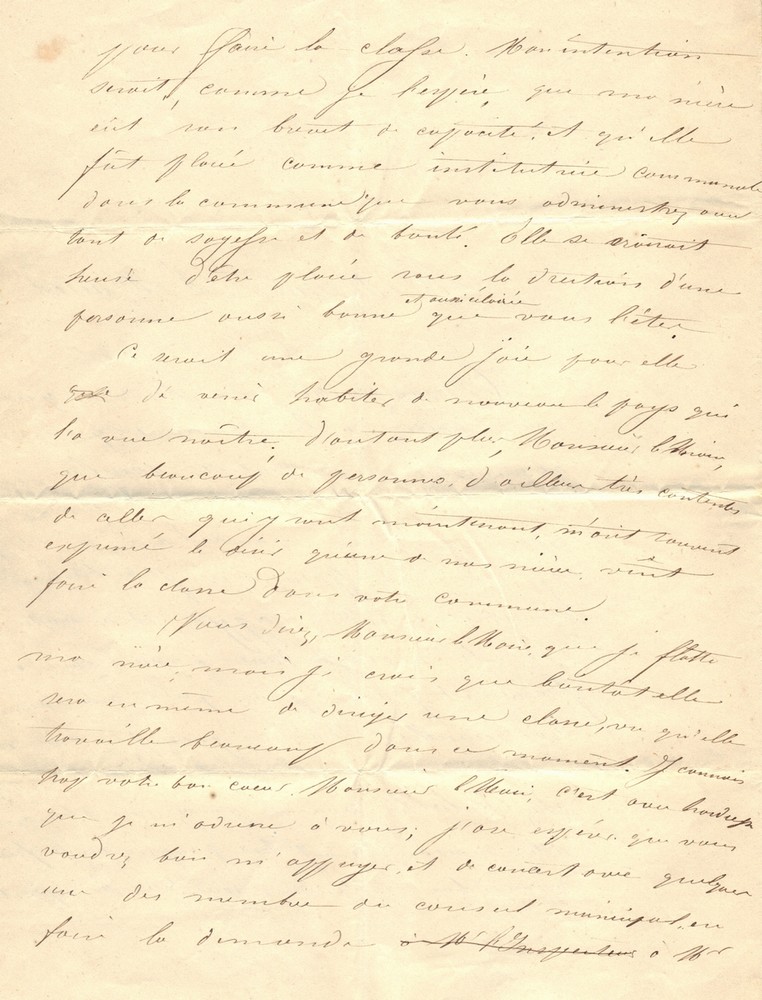 pour faire la classe. Mon intention
serait, comme je l'espère, que ma nièce
eût son brevet de capacité, et qu'elle
fût placée comme institutrice communale
dans la commune que vous administrez avec
tant de sagesse et de bonté. Elle se croirait
heureuse d'être placée sous la direction d'une
personne aussi bonne et aussi éclairée que vous l'êtes.
Ce serait une grande joie pour elle
de venir habiter de nouveau le pays qui
l'a vue naître. D'autant plus, Monsieur le Maire,
que beaucoup de personnes, d'ailleurs très contentes
de celles qui y sont maintenant, m'ont souvent
exprimé le désir qu'une de nos nièces vînt
faire la classe dans votre commune.
Vous direz, Monsieur le Maire, que je flatte
ma nièce, mais je crois que bientôt elle
sera en même de diriger une classe, vu qu'elle
travaille beaucoup dans ce moment. Je connais
trop votre bon cœur, Monsieur le Maire, c'est avec hardiesse
que je m'adresse à vous; j'ose espérer que vous
voudrez bien m'appuyer, et de concert avec quelques
uns des membres du conseil municipal, en
faire la demande à Mr l'Inspecteur à Mr